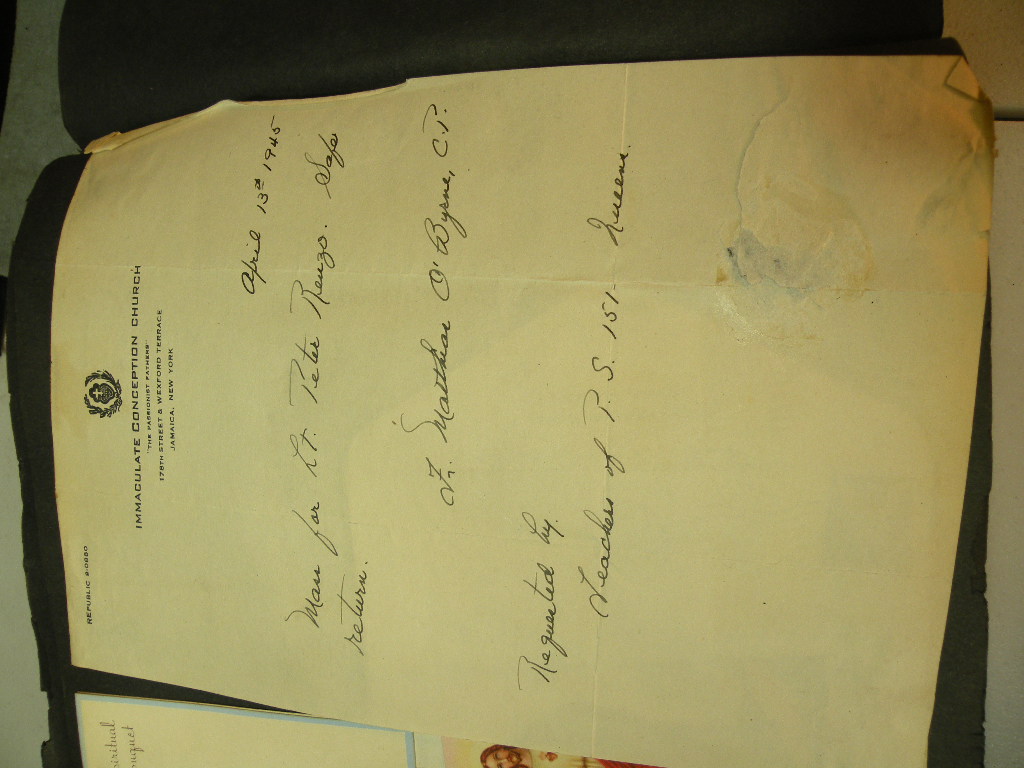 REPUBLIC 9-0880
IMMACULATE CONCEPTION CHURCH
"THE PASSIONIST FATHERS"
178TH STREET & WEXFORD TERRACE
JAMAICA, NEW YORK
April 13th 1945
Mass for Lt. Peter Renzo. Safe
return.
Fr. Matthias O'Byrne, C.P.
Requested by
Teachers of P. S. 151- Queens.